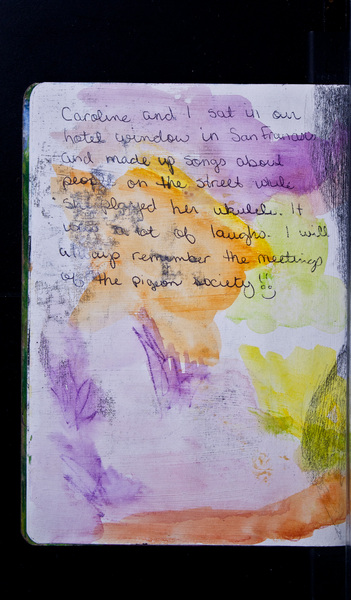 Caroline and I sat in our
hotel window in San Francisco
and made up songs about
people on the street while
she played her ukulele. It
was a lot of laughs. I will
always remember the meetings
of the pigeon society!